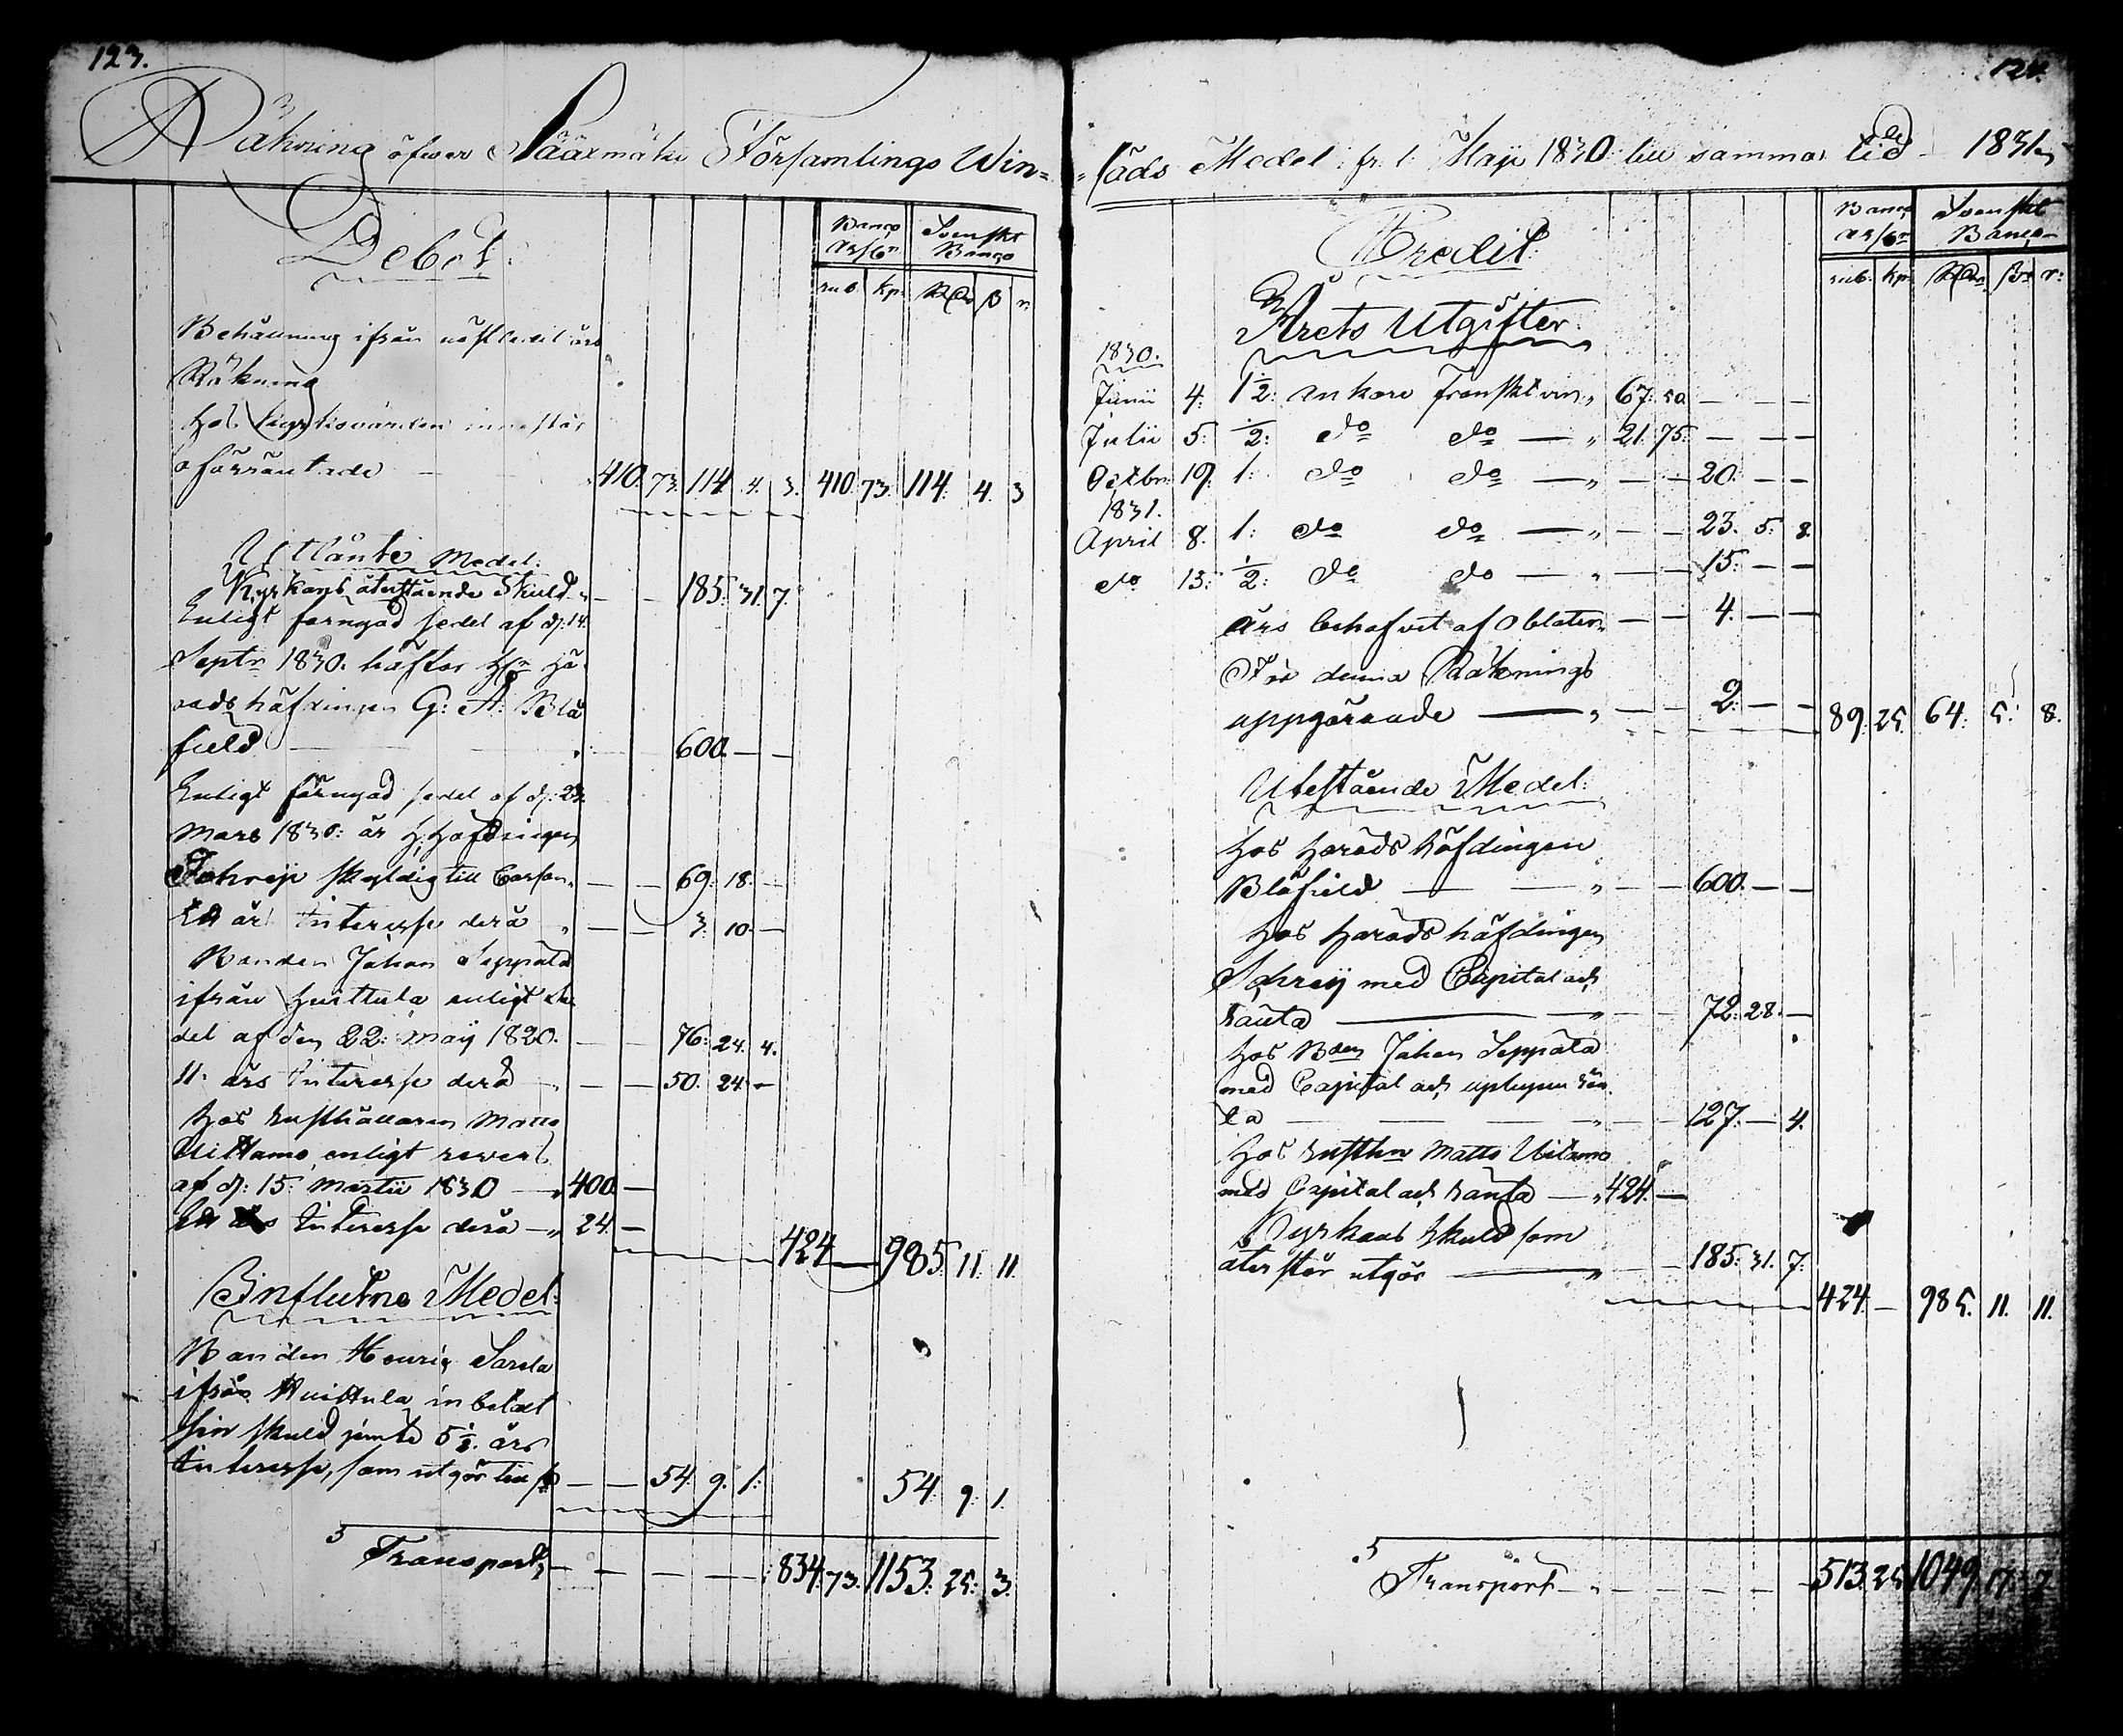 123.
Räkning öfwer Sääxmäki Församlings Win=
Debet:
Banco Ass:
Svenskt Banco
rub. kp. RDr ß r.
Behållning ifrån näst ledit års
Räkning
Hos Kyrkovärden innestår
oförräntade — 410. 73. 114. 4. 3. 410. 73. 114. 4. 3
Utlånte Medel:
Kyrkans återstående Skuld — — 185. 31. 7.
Enligt förnyad sedel af d: 14.
Septr 1830. häftar Hr Hä-
radshöfdingen G: A: Blå
field — 600. — —
Enligt förnyad sedel af d: 23.
Mars 1830: är H. Höfdingen
Schreij skyldig till Cassan — — 69. 18. —
Ett år Interesse derå — — 3. 10. —
Bonden Johan Seppälä
ifrån Huittula enligt se-
del af den 22: Maij 1820. — — 76. 24. 4.
11: års Interesse derå — — 50. 24. —
Hos Rusthållaren Matts
Uittamo enligt revers
af d: 15: Martii 1830 — 400. —
Ett års Interesse derå — 24. —
424 — 985. 11. 11.
Influtne Medel:
Bonden Henric Sarela
ifrån Huittula inbetalt
sin skuld jemte 5½ års
Interesse, som utgör till — — 54. 9. 1. 54. 9. 1.
Transport — — — — 834. 73. 1153. 25. 3.
124.
=säds Medel fr. 1. Maji 1830 till samma tid 1831
Credit:
Banco Ass:
Svenskt Banco
rub. kp. RDr ß r.
Årets Utgifter:
1830.
Junii 4. 1½: Ankare Franskt vin 67. 50. — — —
Julii 5: ½: do do — 21. 75. — — —
Octbr 19. 1: do do — — — 20. — —
1831.
April 8. 1: do do — — — 23. 5. 8.
do 13: ½: do do — — — 15. — —
Års behofvet af Oblater — — 4. — —
För denna Räknings
uppgörande — — — 2. — — 89. 25. 64. 5. 8.
Utestående Medel:
Hos Härads Höfdingen
Blåfield — — — 600. — —
Hos Häradshöfdingen
Schreij med Capital och
ränta — — — 72. 28. —
Hos Bden Johan Seppälä
med Capital och uplupen rän-
ta — — — 127. — 4.
Hos Rusthr Matts Uitamo
med Capital och ränta — 424. —
Kyrkans Skuld som
återstår utgör — — 185. 31. 7.
424. — 985. 11. 11.
Transport — — — — 513. 25 1049. 17. 7